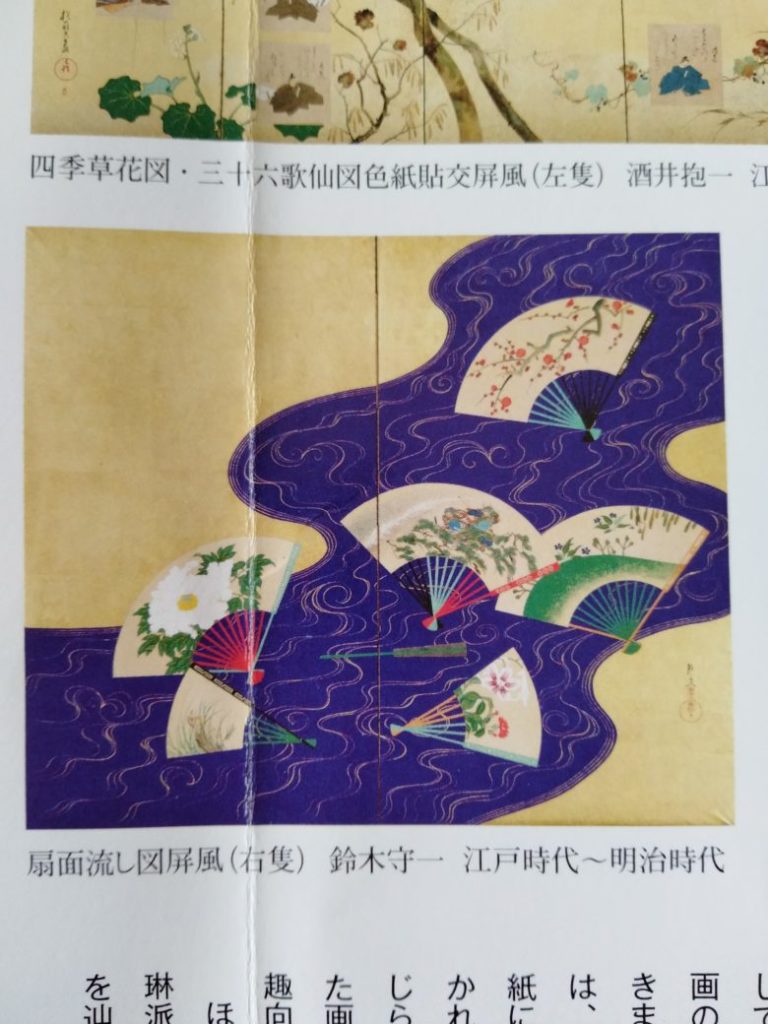 四季草花図・三十六歌仙図色紙貼交屏風(左隻) 酒井抱一 江
扇面流し図屏風(右隻) 鈴木守一 江戸時代～明治時代
して
画の
きま
は、
紙に
かれ
じら
た画
趣向
ほ
琳派
を辿